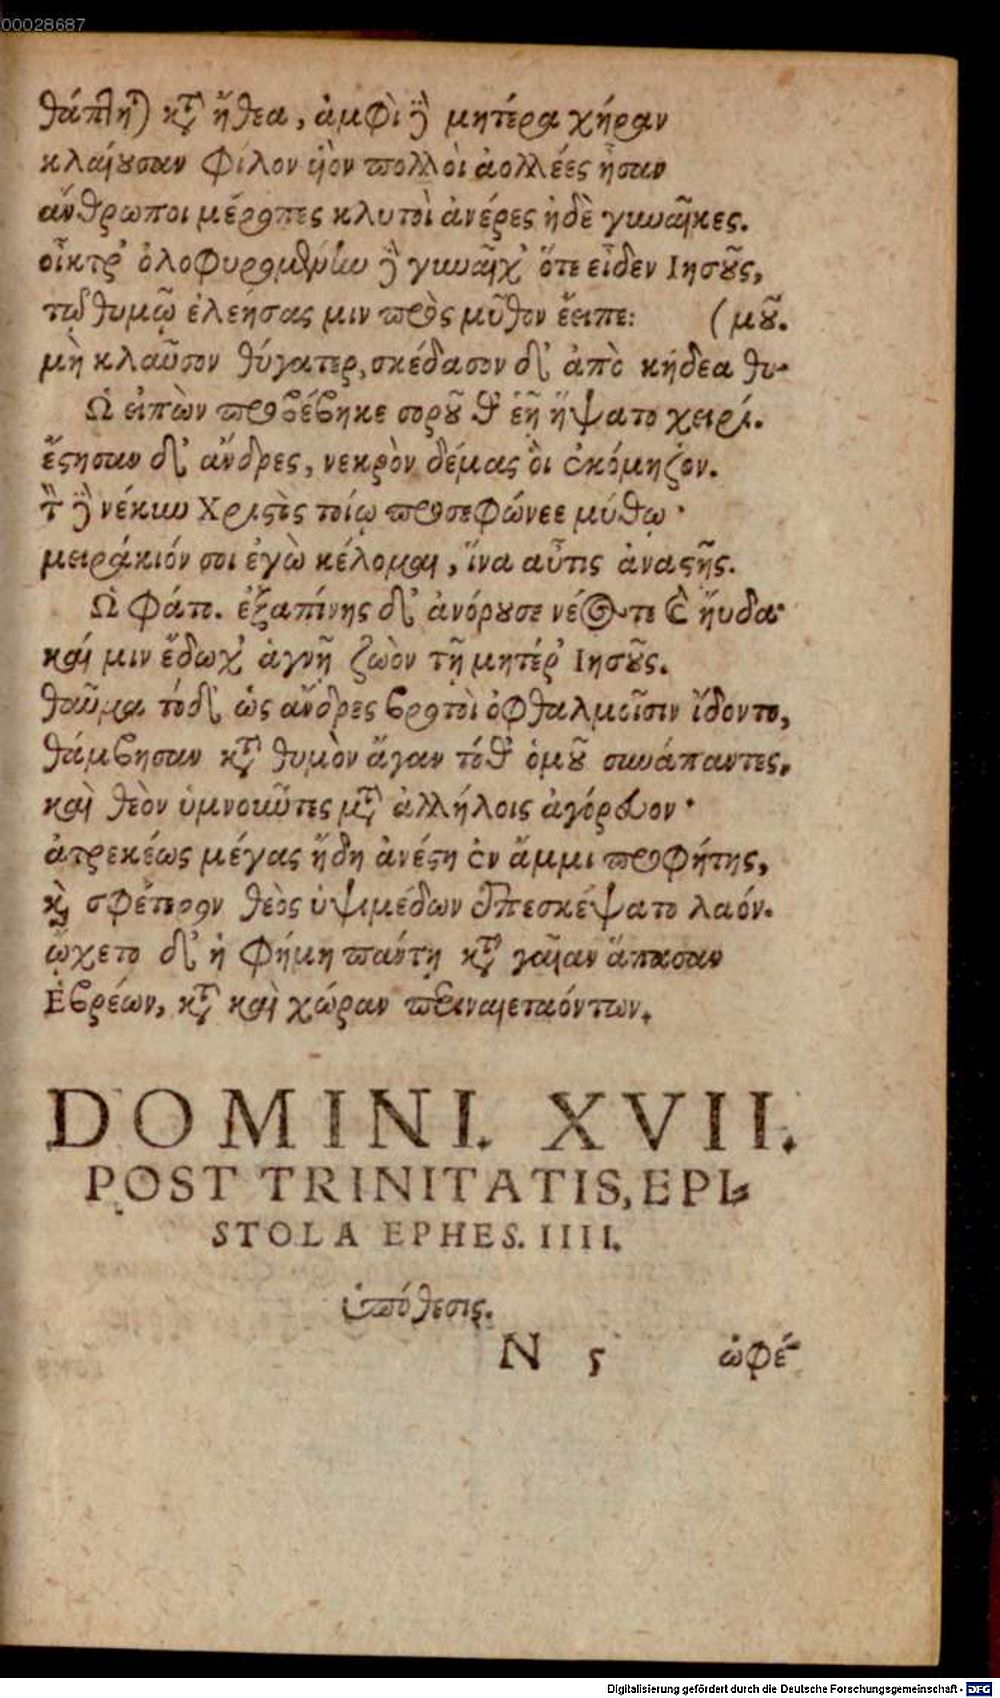 00028687
θάπτητ) κτ̀ ἤθεα, ἀμφὶ δ̀ μητέρα χήραν
κλαίουσαν φίλον υἱὸν πολλοὶ ἀολλέες ἦσαν
ἄνθρωποι μέροπες κλυτοὶ ἀνέρες ἠδὲ γυναῖκες.
οἶκτρ᾽ ὀλοφυρομένην γυναῖχ᾽ ὅτε εἶδεν Ιησοῦς,
τῷ θυμῷ ἐλεήσας μιν πρὸς μῦθον ἔειπε: (μοῦ.
μὴ κλαῦσον θύγατερ, σκέδασον δ᾽ ἀπὸ κήδεα θυ-
Ὣ εἰπὼν προσέβηκε σοροῦ θ᾽ ἑῇ ἥψατο χειρί.
ἔστησαν δ᾽ ἄνδρες, νεκρὸν δέμας οἳ ἐκόμηζον.
νέκυν Χριστὸς τοίῳ προσεφώνεε μύθῳ·
μειράκιόν σοι ἐγὼ κέλομαι, ἵνα αὖτις ἀναστῇς.
Ὣ φάτο. ἐξαπίνης δ᾽ ἀνόρουσε νέος τε καὶ ηὔδα·
καί μιν ἔδωχ᾽ ἁγνῇ ζωὸν τῇ μητέρ᾽ Ιησοῦς.
θαῦμα τόδ᾽ ὡς ἄνδρες βροτοὶ ὀφθαλμοῖσιν ἴδοντο,
θάμβησαν κατὰ θυμὸν ἄγαν τόθ᾽ ὁμοῦ συνάπαντες,
καὶ θεὸν ὑμνοιῶτες μετ᾽ ἀλλήλοις ἀγόρευον·
ἀτρεκέως μέγας ἤδη ἀνέστη ἐν ἄμμι προφήτης,
καὶ σφέτερον θεὸς ὑψιμέδων ἐπεσκέψατο λαόν.
ᾤχετο δ᾽ ἡ φήμη πάντη κατὰ γαῖαν ἅπασαν
Ἑβρέων, κατὰ καὶ χώραν περιναιεταόντων.
DOMINI. XVII.
POST TRINITATIS, EPI-
STOLA EPHES. IIII.
ὑπόθεσις.
N 5 ὠφέ-
Digitalisierung gefördert durch die Deutsche Forschungsgemeinschaft - DFG